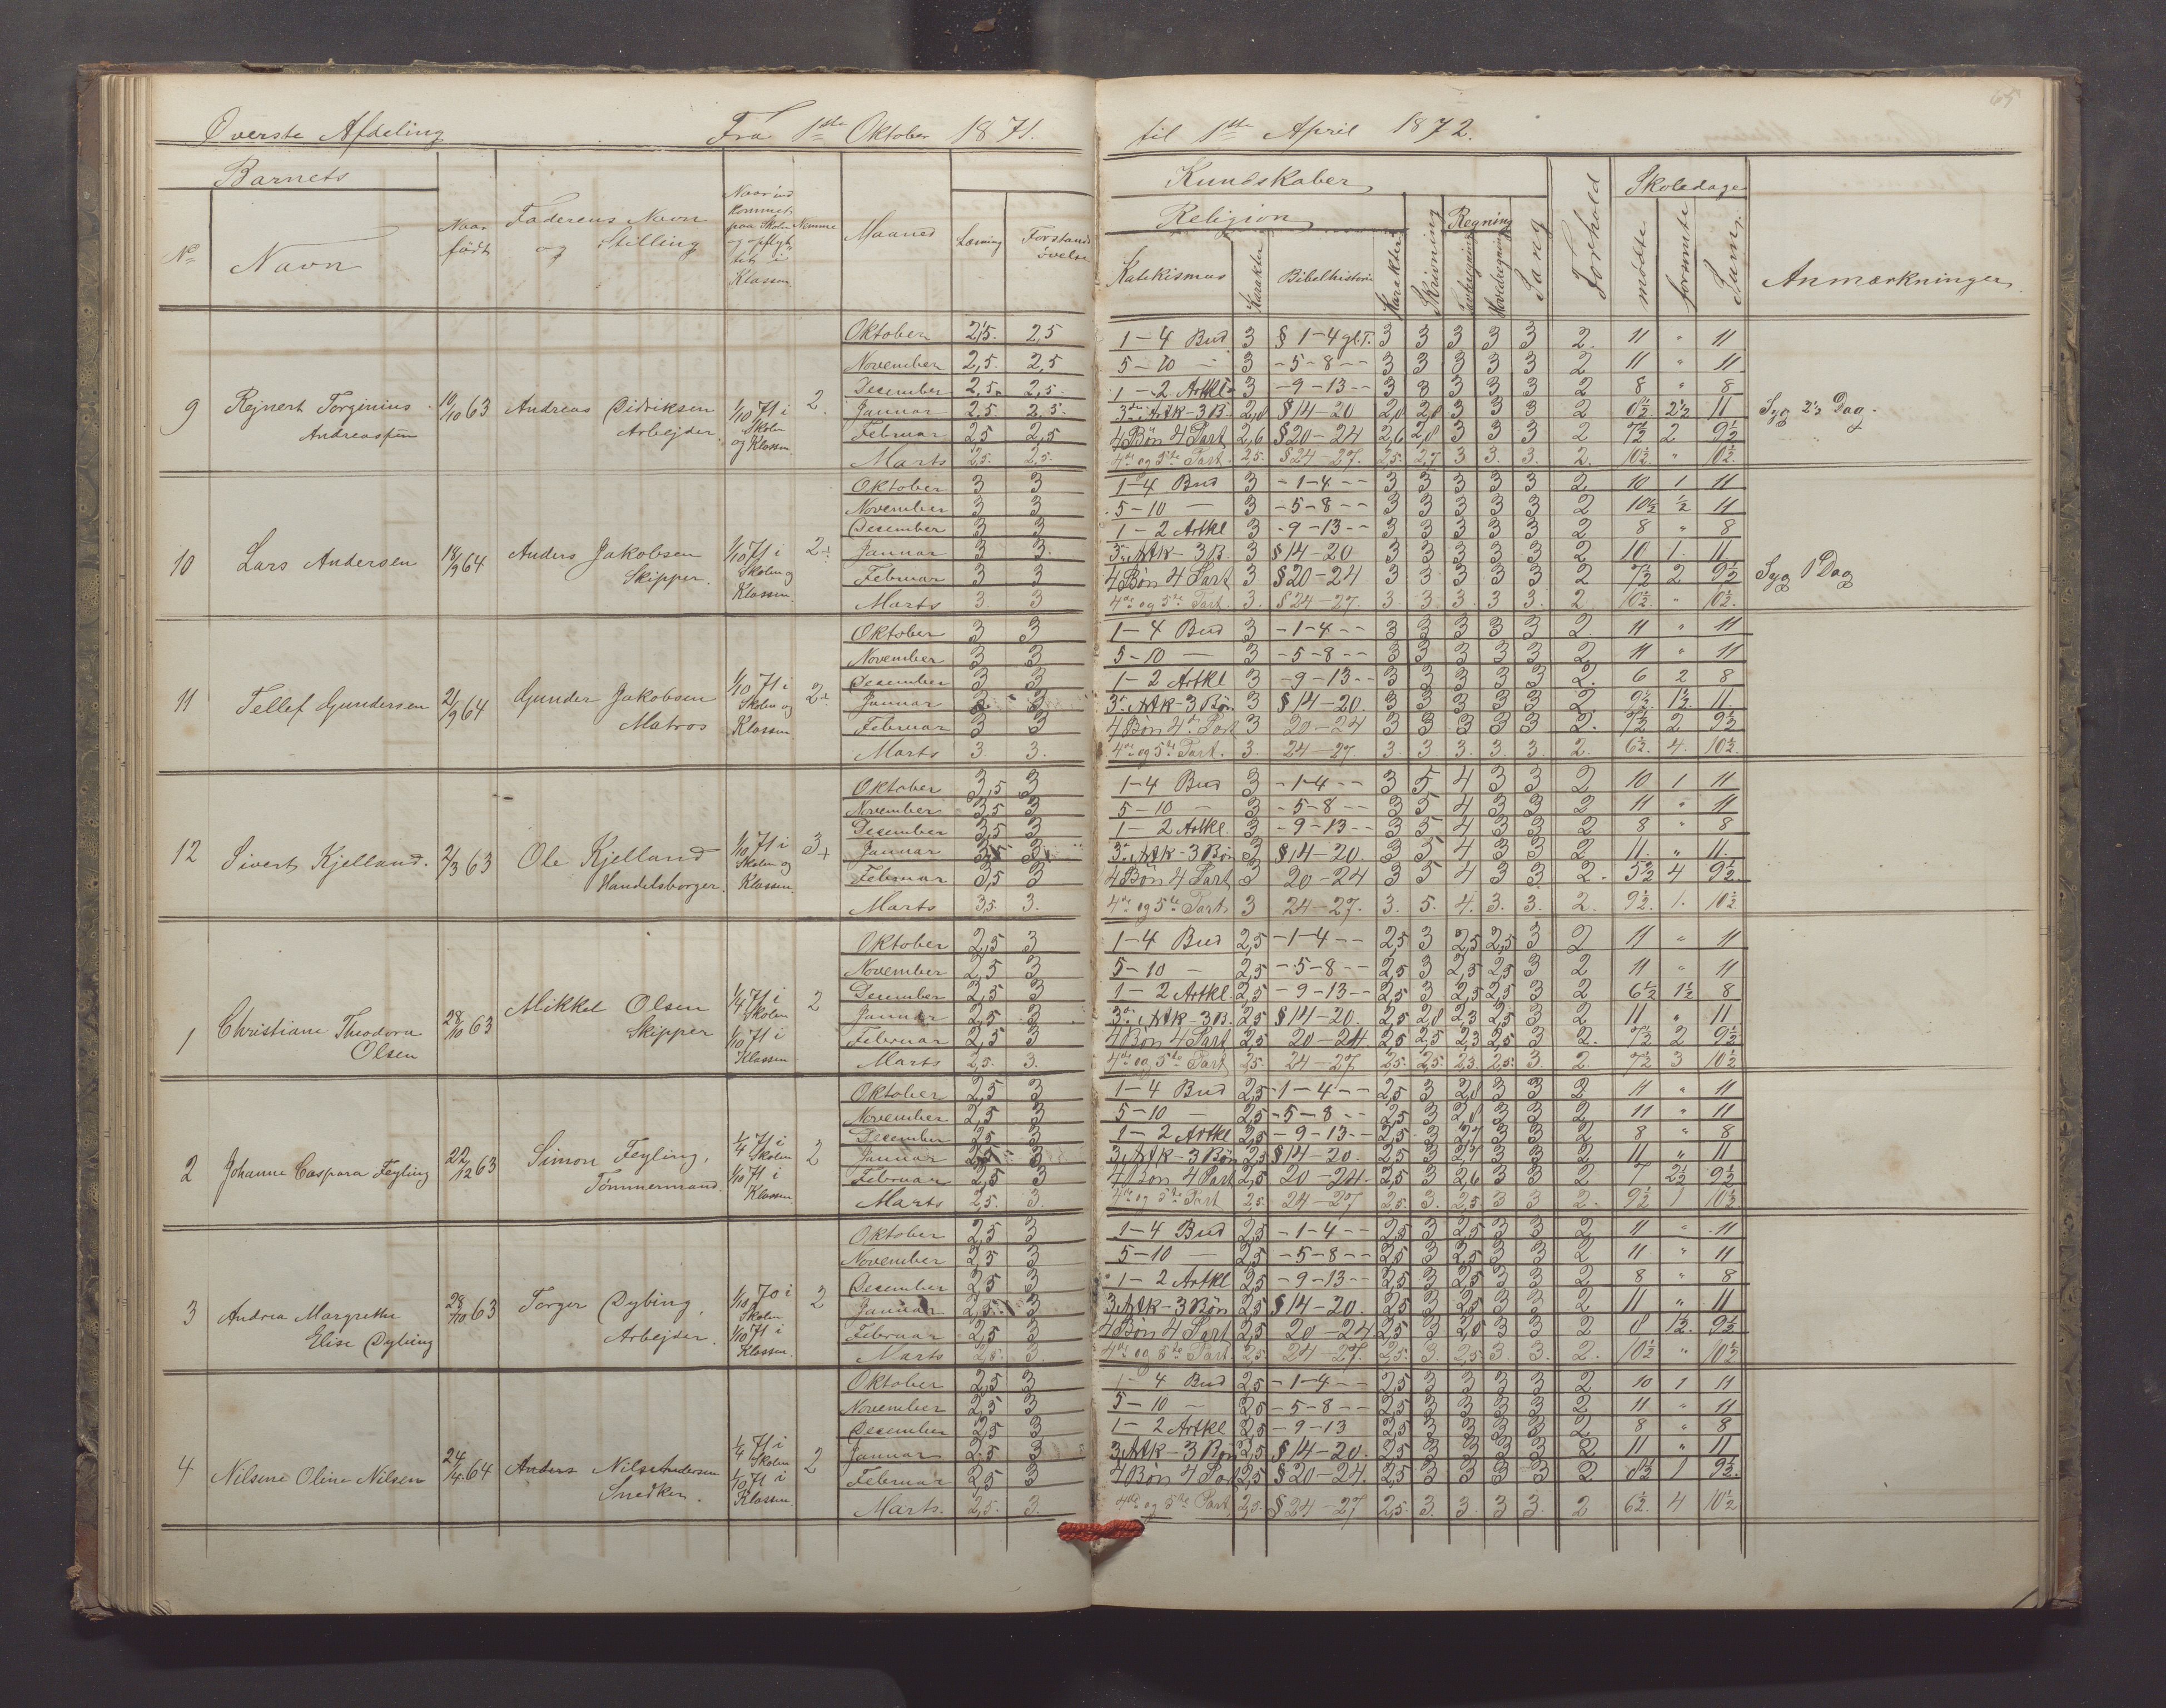 65
Øverste Afdeling Fra 1ste Oktober 1871. til 1ste April 1872.
Barnets
No Navn
Naar født
Faderens Navn og Stilling
Naar ind kommet paa Skolen og opflyttet i Klassen
Nemme
Maaned
Læsning
Forstandsøvelse
Kundskaber
Religion
Katekismus
Karakter
Bibelhistorie
Karakter
Skrivning
Regning
Tavleregning
Hovedregning
Sang
Forhold
Skoledage
mødte
forsømte
Sum
Anmærkninger
9 Rejnert Torginius Andreassen 10/10 63 Andreas Didriksen Arbejder 1/10 71 i Skolen og Klassen 2
Oktober 2,5. 2,5 1-4 Bud 3 § 1-4 gl.T. 3 3 3 3 3 2. 11 " 11
November 2,5. 2,5 5-10 — 3 -5-8-- 3 3 3 3 3 2 11 " 11
December 2,5. 2,5. 1-2 Artkl 3 -9-13-- 3 3 3 3 3 2 8 " 8
Januar 2,5. 2,5. 3die Artk-3B. 2,8 § 14-20 2,8 2,8 3 3 3 2 8½ 2½ 11 Syg 2½ Dag.
Februar 2,5 2,5 4 Bøn 4 Part 2,6 § 20-24 2,6 2,8 3 3 3 2 7½ 2 9½
Marts 2,5. 2,5. 4de og 5te Part. 2,5. § 24-27. 2,5. 2,7 3 3. 3. 2. 10½ " 10½.
10 Lars Andersen 18/9 64 Anders Jakobsen Skipper. 1/10 71 i Skolen og Klassen. 2÷
Oktober 3 3 1-4 Bud 3 -1-4-- 3 3 3 3 3 2 10 1 11
November 3 3 5-10 — 3 -5-8-- 3 3 3 3 3 2 10½ ½ 11
December 3 3 1-2 Artkl 3 -9-13-- 3 3 3 3 3 2 8 " 8
Januar 3 3. 3. Artk-3B. 3 § 14-20 3 3 3 3 3 2 10 1. 11
Februar 3 3 4 Bøn 4 Part 3 § 20-24 3 3 3 3 3 2 7½ 2 9½ Syg 1 Dag
Marts 3. 3 4de og 5te Part. 3. § 24-27. 3. 3. 3. 3 3. 2. 10½. " 10½.
11 Tellef Gundersen 21/9 64 Gunder Jakobsen Matros 1/10 71 i Skolen og Klassen 2÷
Oktober 3 3 1-4 Bud 3 -1-4-- 3 3 3 3 3 2. 11 " 11
November 3 3 5-10 — 3 -5-8-- 3 3 3 3 3 2 11 " 11
December 3 3 1-2 Artkl 3 -9-13- 3 3 3 3 3 2. 6 2 8
Januar 3 3 3. Artk-3 Bøn 3 § 14-20. 3 3 3 3 3 2 9½ 1½ 11.
Februar 3 3 4 Bøn 4de Part 3 20-24 3 3 3 3 3 2. 7½ 2 9½
Marts 3 3. 4de og 5te Part. 3. 24-27. 3. 3 3. 3. 3. 2. 6½. 4. 10½.
12 Sivert Kjelland. 2/3 63 Ole Kjelland Handelsborger. 1/10 71 i Skolen og Klassen 3+
Oktober 3,5 3 1-4 Bud 3 -1-4-- 3 5 4 3 3 2 10 1 11
November 3,5 3 5-10 — 3 -5-8-- 3 5 4 3 3 2 11 " 11
December 3,5 3 1-2 Artkl. 3 -9-13-- 3 5 4 3 3 2 8 " 8
Januar 3,5 3 3. Artk-3 Bøn 3 § 14-20. 3 5 4 3 3 2 11. " 11.
Februar 3,5 3 4 Bøn 4 Part 3 20-24 3 5 4 3 3 2. 5½ 4 9½
Marts 3,5. 3. 4de og 5te Part. 3 24-27. 3. 5. 4. 3. 3. 2. 9½. 1. 10½
1 Christiane Theodora Olsen 28/10 63 Mikkel Olsen Skipper 1/4 71 i Skolen 1/10 71 i Klassen 2
Oktober 2,5 3 1-4 Bud 2,5 -1-4-- 2,5 3 2,5 2,5 3 2 11 " 11
November 2,5 3 5-10 — 2,5 -5-8-- 2,5 3 2,5 2,5 3 2 11 " 11
December 2,5 3 1-2 Artkl. 2,5 -9-13-- 2,5 3 2,5 2,5 3 2 6½ 1½ 8
Januar 2,5 3 3. Artk-3B. 2,5 § 14-20. 2,5 2,8 2,3 2,5 3 2 11 " 11
Februar 2,5 3 4 Bøn 4 Part 2,5 20-24 2,5 2,5 2,3 2,5 3 2. 7½ 2 9½
Marts 2,5. 3. 4de og 5te Part 2,5. 24-27 2,5. 2,5. 2,3. 2,5. 3. 2. 7½ 3 10½
2 Johanne Caspara Feyling 22/12 63 Simon Feyling, Tømmermand. 1/4 71 i Skolen 1/10 71 i Klassen 2
Oktober 2,5 3 1-4 Bud 2,5 -1-4-- 2,5 3 2,8 3 3 2 11 " 11
November 2,5 3 5-10 — 2,5 -5-8-- 2,5 3 2,8 3 3 2 11 " 11
December 2,5 3 1-2 Artkl 2,5 -9-13-- 2,5 3 2,7 3 3 2 8 " 8
Januar 2,5 3 3. Artk-3 Bøn 2,5 § 14-20. 2,5 3 2,7 3 3 2 11 " 11
Februar 2,5 3 4 Bøn 4 Part 2,5 20-24. 2,5 3 2,6 3 3 2 7 2½ 9½
Marts 2,5. 3. 4de og 5te Part 2,5. 24-27 2,5. 3. 2,5 3 3 2. 9½ 1 10½
3 Andrea Margrethe Elise Dybing 28/10 63 Torger Dybing, Arbejder. 1/10 70 i Skolen 1/10 71 i Klassen. 2
Oktober 2,5 3 1-4 Bud 2,5 -1-4-- 2,5 3 2,5 3 3 2 11 " 11
November 2,5 3 5-10 — 2,5 -5-8-- 2,5 3 2,5 3 3 2 11 " 11
December 2,5 3 1-2 Artkl 2,5 -9-13-- 2,5 3 2,5 3 3 2 8 " 8
Januar 2,5 3 3. Artk-3 Bøn 2,5 § 14-20. 2,5 3 2,5 3 3 2 11 " 11
Februar 2,5 3 4 Bøn 4 Part 2,5 20-24 2,5 3 2,8 3 3 2 8 1½. 9½
Marts 2,5. 3. 4de og 5te Part. 2,5. 24-27. 2,5. 3. 2,5. 3. 3. 2. 10½ " 10½
4 Nilsine Oline Nilsen 24/4 64 Anders Nils Andersen Snedker. 1/4 71 i Skolen 1/10 71 i Klassen 2
Oktober 2,5 3 1-4 Bud 2,5 -1-4-- 2,5 3 3 3 3 2 10 1 11
November 2,5 3 5-10 — 2,5 -5-8-- 2,5 3 3 3 3 2 11 " 11
December 2,5 3 1-2 Artkl 2,5 -9-13 2,5 3 3 3 3 2 8 " 8
Januar 2,5 3 3. Artk-3 Bøn 2,5 § 14-20. 2,5 3 3 3 3 2 11 " 11
Februar 2,5 3 4 Bøn 4 Part 2,5 § 20-24. 2,5 3 3 3 3 2 8½ 1 9½.
Marts. 2,5. 3. 4de og 5te Part. 2,5. § 24-27 2,5. 3. 3. 3 3. 2 6½. 4 10½